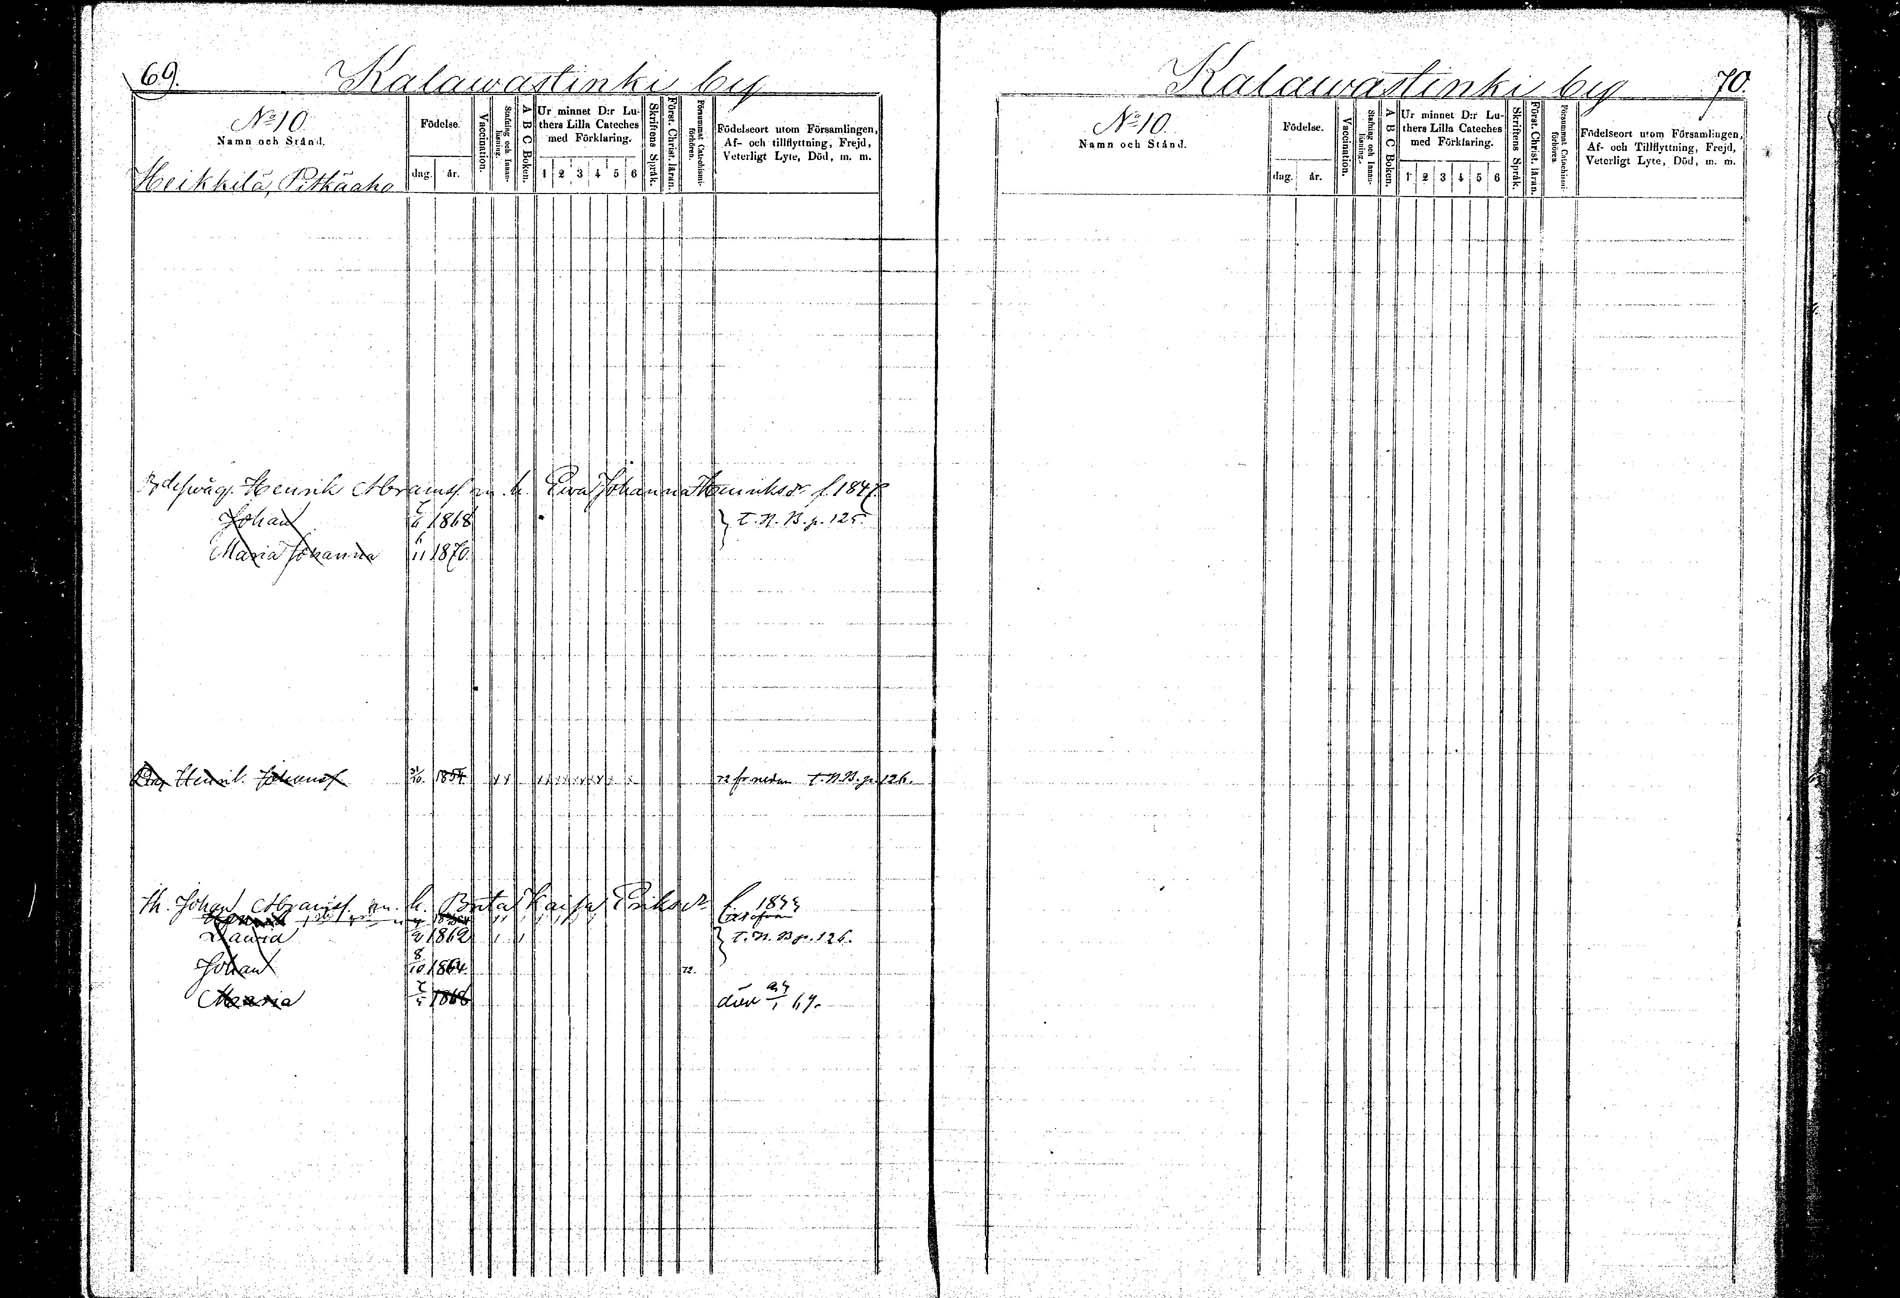 69.
Kalawastinki by
No 10.
Namn och Stånd.
Födelse.
dag. år.
Vaccination.
Stafning och Innanläsning.
A B C Boken.
Ur minnet D:r Luthers Lilla Cateches med Förklaring.
1 2 3 4 5 6
Skriftens Språk.
Först. Christ. läran.
Försummat Catechismiförhören.
Födelseort utom Församlingen,
Af- och tillflyttning, Frejd,
Veterligt Lyte, Död, m. m.
Heikkilä, Pitkäaho
Henrik Abramsf. m. h. Ewa Johanna Henriksdr f. 1847.
Johan 1868 t. N. B. p. 125.
Maria Johanna 11 1870.
Henrik Johansf 1854 72 fr nedan t. N. B. p. 126.
th. Johan Abramsf. m. h. Brita Kaisa Eriksdr f. 18
Henrik
Dawid 1862 t. N. B p. 126.
Johan 8/10 1864. 72.
Maria 1868 död 69.
Kalawastinki by
70.
No 10.
Namn och Stånd.
Födelse.
dag. år.
Vaccination.
Stafning och Innanläsning.
A B C Boken.
Ur minnet D:r Luthers Lilla Cateches med Förklaring.
1 2 3 4 5 6
Skriftens Språk.
Först. Christ. läran.
Försummat Catechismiförhören.
Födelseort utom Församlingen,
Af- och Tillflyttning, Frejd,
Veterligt Lyte, Död, m. m.